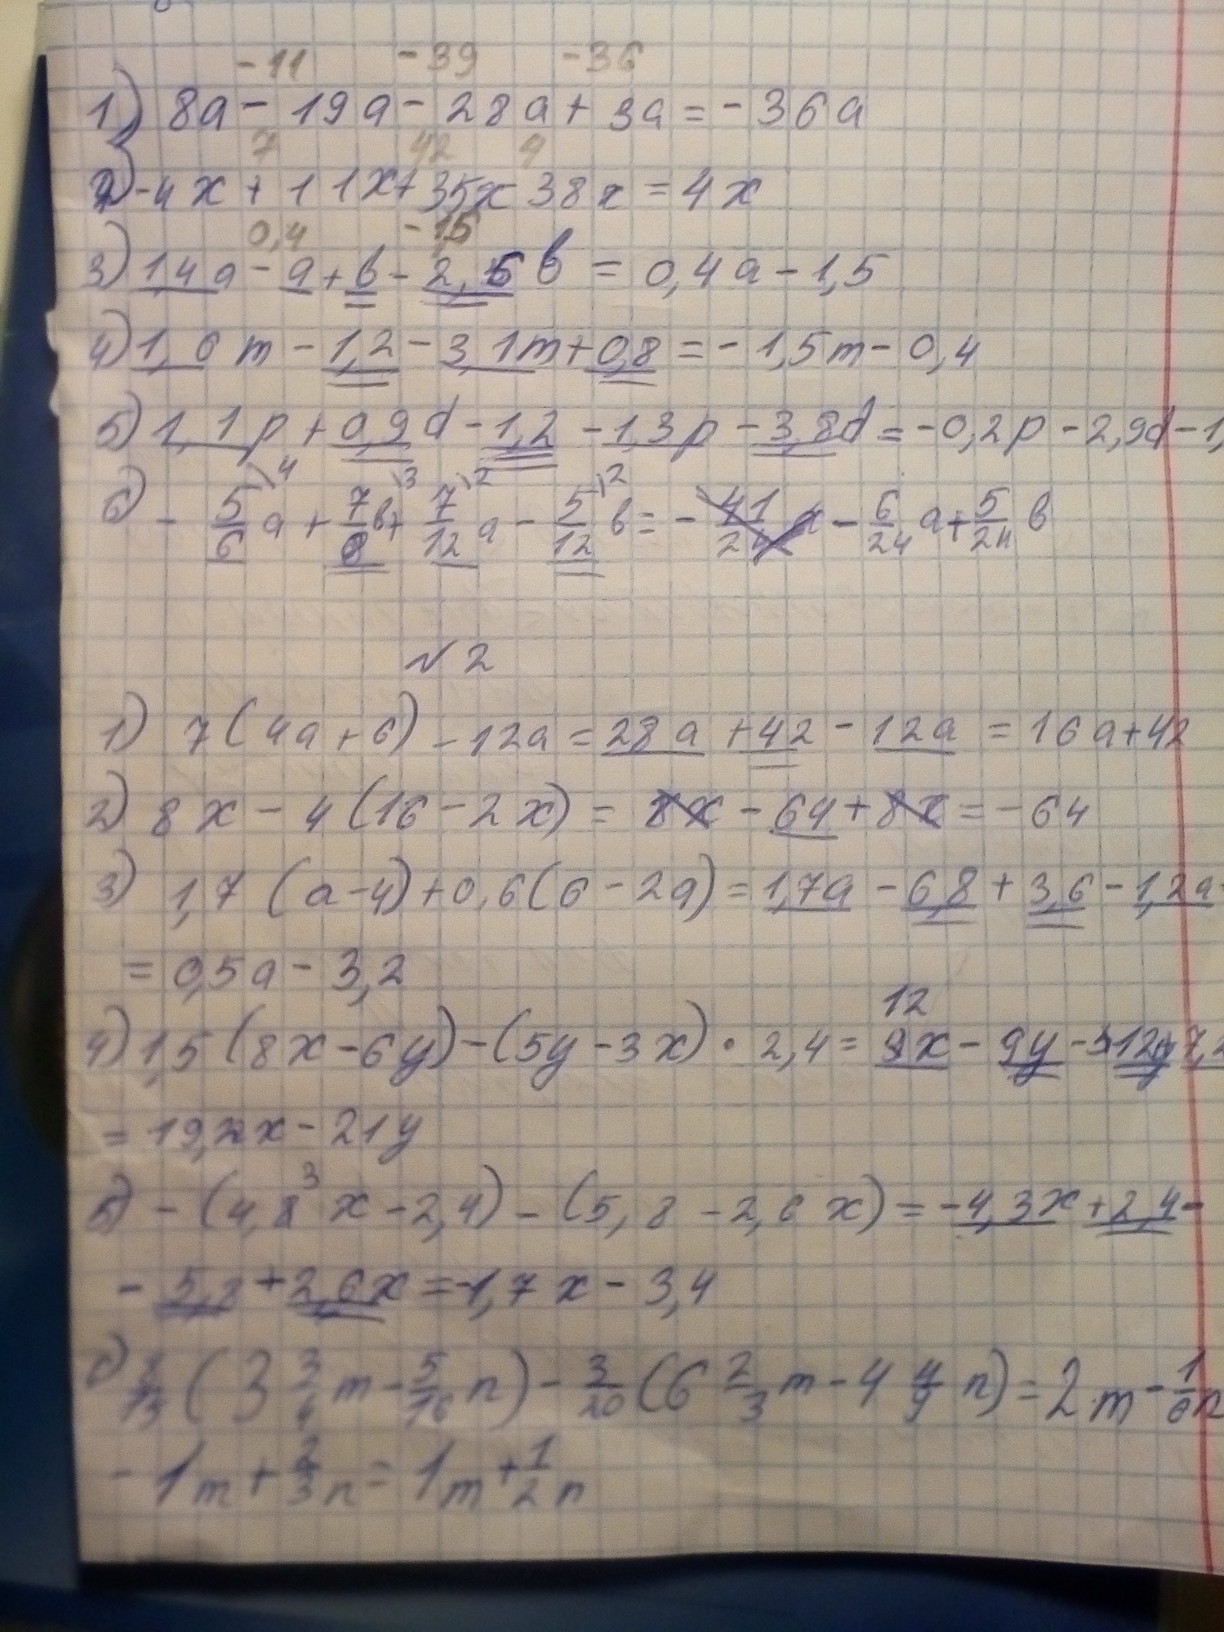 -11 -39 -36
1) 8a - 19a - 28a + 3a = -36a
7 42 4
2) -4x + 11x + 35x 38x = 4x
0,4 -1,5
3) 1,4a - a + b - 2,5b = 0,4a - 1,5
4) 1,6m - 1,2 - 3,1m + 0,8 = -1,5m - 0,4
5) 1,1p + 0,9d - 1,2 - 1,3p - 3,8d = -0,2p - 2,9d - 1,
6) - 5/6 \4 a + 7/8 \3 b + 7/12 \2 a - 5/12 \2 b = - 6/24 a + 5/24 b
№2
1) 7(4a + 6) - 12a = 28a + 42 - 12a = 16a + 42
2) 8x - 4(16 - 2x) = 8x - 64 + 8x = -64
3) 1,7(a - 4) + 0,6(6 - 2a) = 1,7a - 6,8 + 3,6 - 1,2a =
= 0,5a - 3,2
12
4) 1,5(8x - 6y) - (5y - 3x) · 2,4 = x - 9y - 12y + 7,2
= 19,2x - 21y
5) -(4,3x - 2,4) - (5,8 - 2,6x) = -4,3x + 2,4 -
- 5,8 + 2,6x = -1,7x - 3,4
6) 8/15 (3 3/4 m - 5/16 n) - 3/20 (6 2/3 m - 4 4/9 n) = 2m - 1/6 n
- 1m + 2/3 n = 1m + 1/2 n